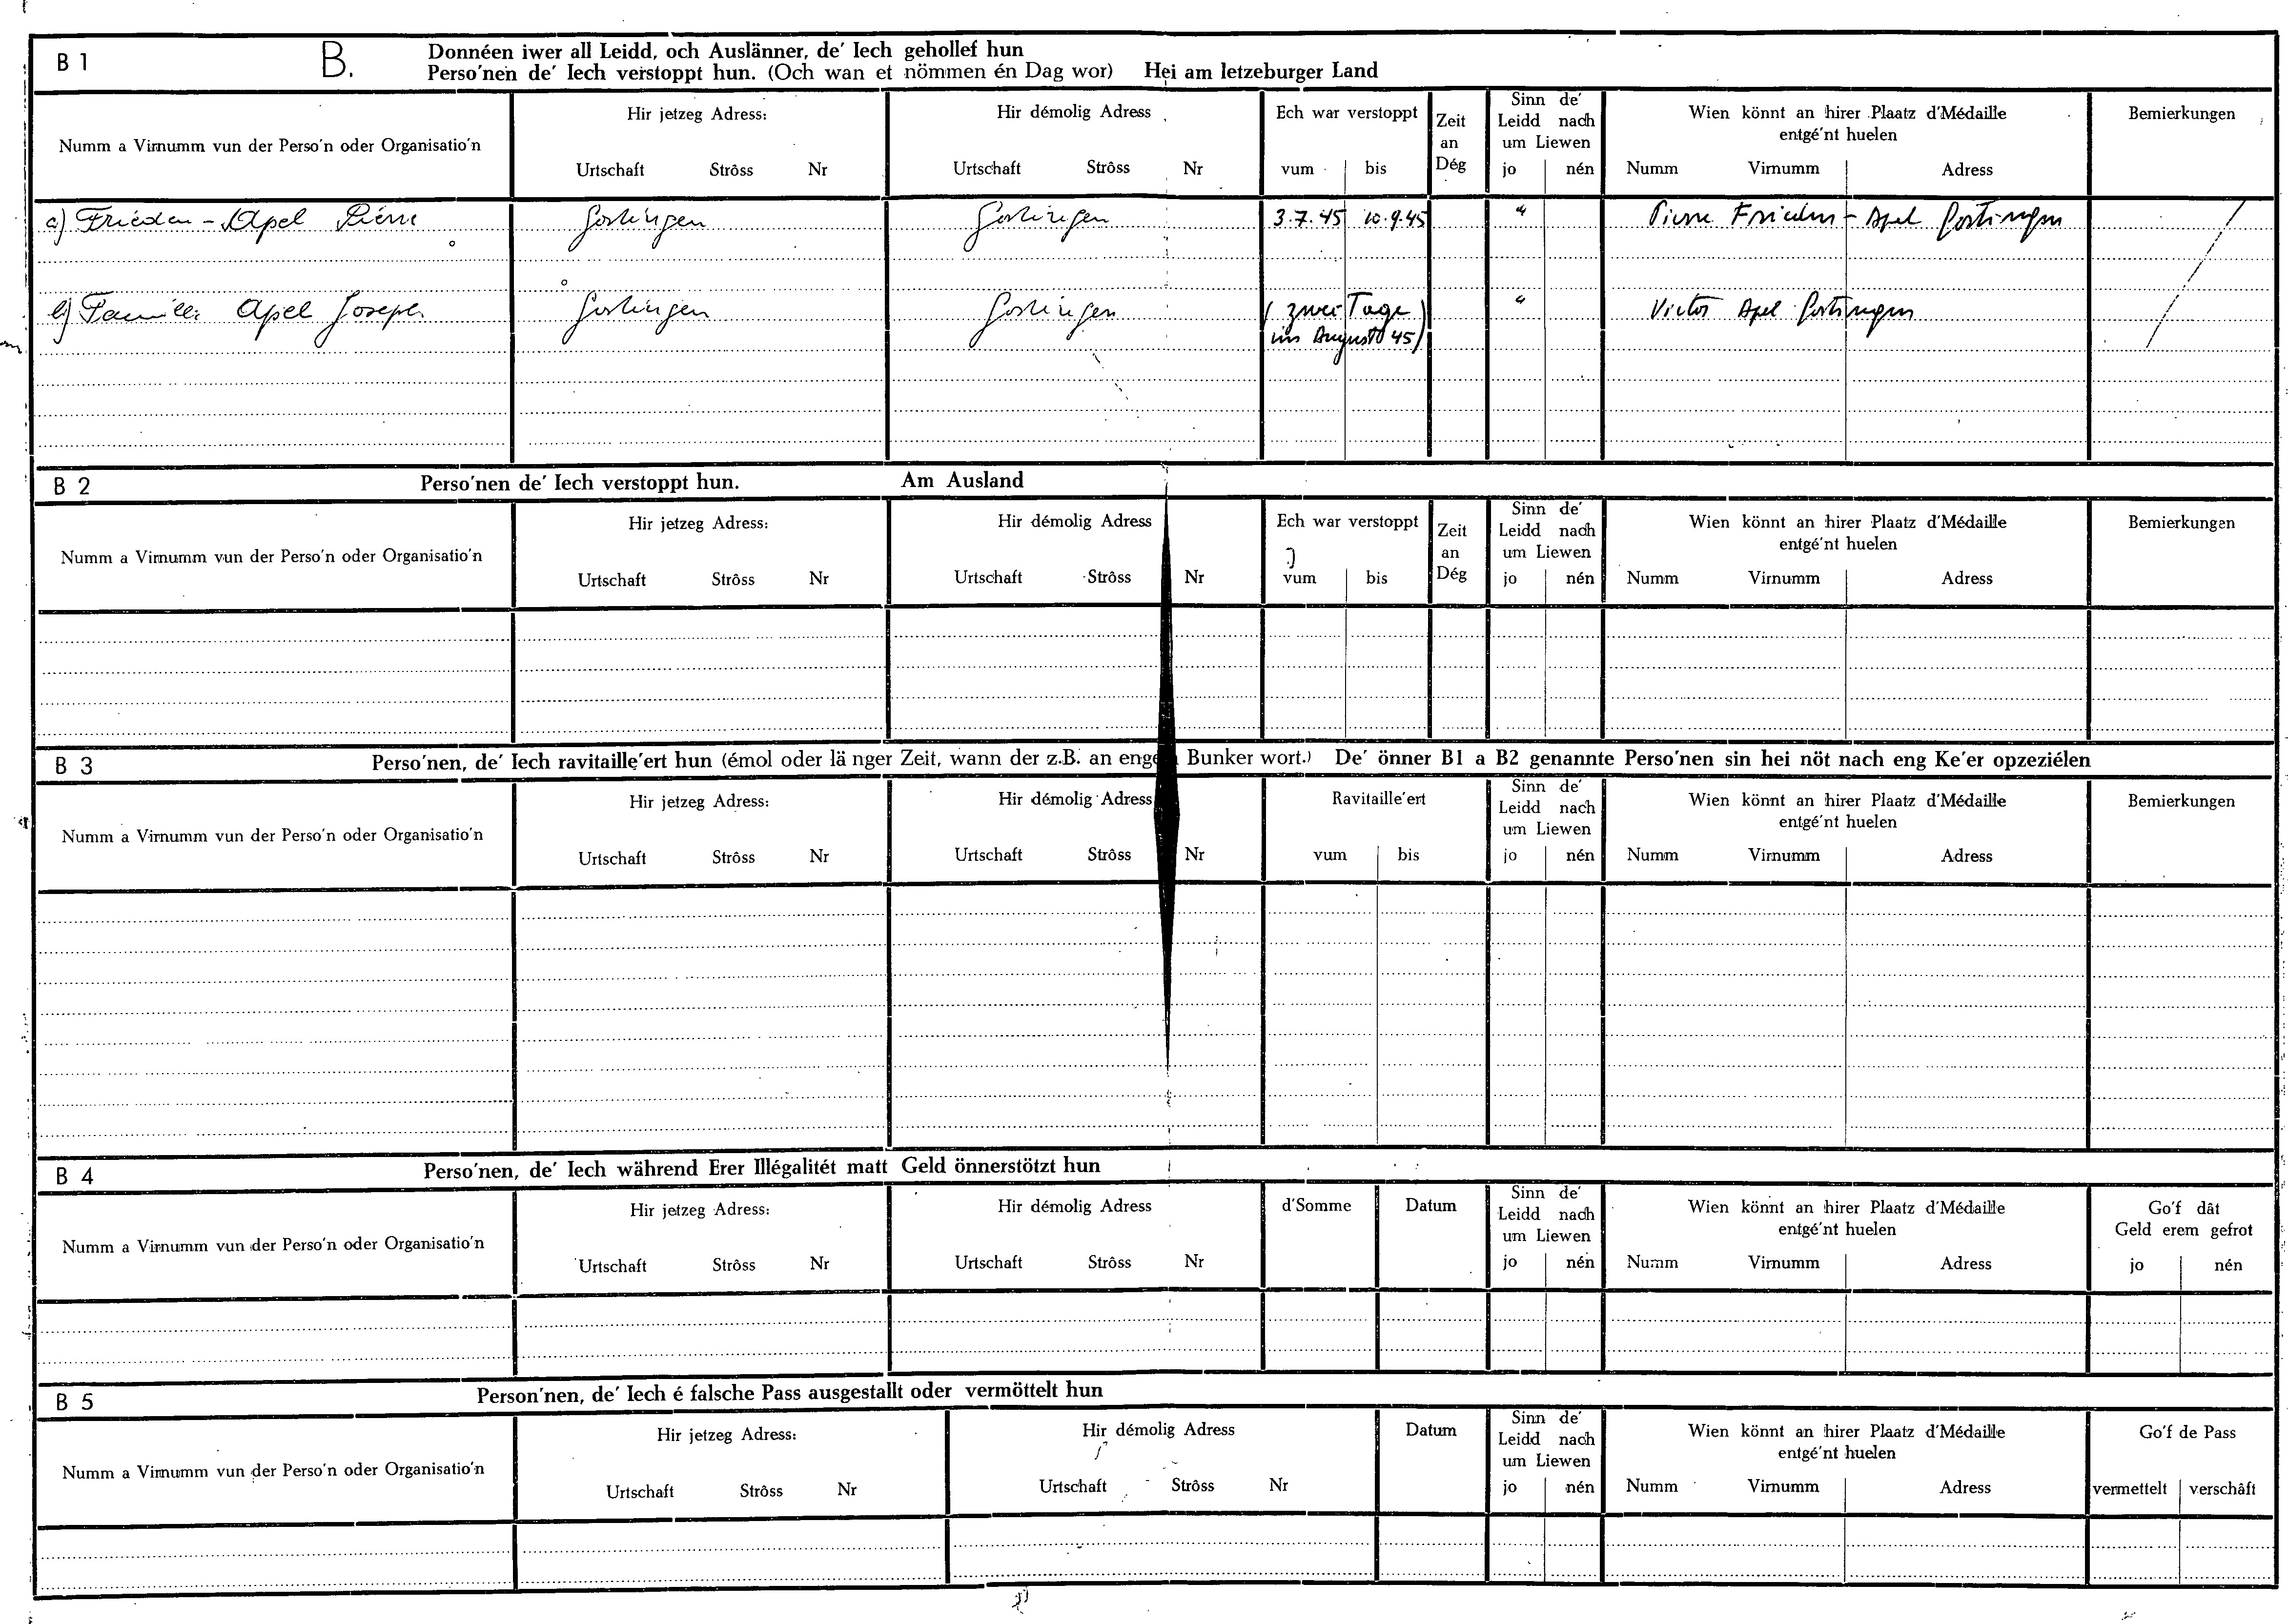 B 1 B. Donnéen iwer all Leidd, och Auslänner, de' Iech gehollef hun
Perso'nen de' Iech verstoppt hun. (Och wan et nömmen én Dag wor) Hei am letzeburger Land
Numm a Virnumm vun der Perso'n oder Organisatio'n
Hir jetzeg Adress:
Urtschaft Strôss Nr
Hir démolig Adress
Urtschaft Strôss Nr
Ech war verstoppt
vum bis
Zeit
an
Dég
Sinn de'
Leidd nach
um Liewen
jo nén
Wien könnt an hirer Plaatz d'Médaille
entgé'nt huelen
Numm Virnumm Adress
Bemierkungen
a) Frieden - Apel Pierre Gostingen Gostingen 3.7.45 10.9.45 " Pierre Frieden - Apel Gostingen
b) Famille Apel Joseph Gostingen Gostingen ( zwei Tage " Victor Apel Gostingen
im August 45)
B 2 Perso'nen de' Iech verstoppt hun. Am Ausland
Numm a Virnumm vun der Perso'n oder Organisatio'n
Hir jetzeg Adress:
Urtschaft Strôss Nr
Hir démolig Adress
Urtschaft Strôss Nr
Ech war verstoppt
vum bis
Zeit
an
Dég
Sinn de'
Leidd nach
um Liewen
jo nén
Wien könnt an hirer Plaatz d'Médaille
entgé'nt huelen
Numm Virnumm Adress
Bemierkungen
B 3 Perso'nen, de' Iech ravitaille'ert hun (émol oder länger Zeit, wann der z.B. an enge Bunker wort.) De' önner B1 a B2 genannte Perso'nen sin hei nöt nach eng Ke'er opzeziélen
Numm a Virnumm vun der Perso'n oder Organisatio'n
Hir jetzeg Adress:
Urtschaft Strôss Nr
Hir démolig Adress
Urtschaft Strôss Nr
Ravitaille'ert
vum bis
Sinn de'
Leidd nach
um Liewen
jo nén
Wien könnt an hirer Plaatz d'Médaille
entgé'nt huelen
Numm Virnumm Adress
Bemierkungen
B 4 Perso'nen, de' Iech während Erer Illégalitét matt Geld önnerstötzt hun
Numm a Virnumm vun der Perso'n oder Organisatio'n
Hir jetzeg Adress:
Urtschaft Strôss Nr
Hir démolig Adress
Urtschaft Strôss Nr
d'Somme
Datum
Sinn de'
Leidd nach
um Liewen
jo nén
Wien könnt an hirer Plaatz d'Médaille
entgé'nt huelen
Numm Virnumm Adress
Go'f dât
Geld erem gefrot
jo nén
B 5 Person'nen, de' Iech é falsche Pass ausgestallt oder vermöttelt hun
Numm a Virnumm vun der Perso'n oder Organisatio'n
Hir jetzeg Adress:
Urtschaft Strôss Nr
Hir démolig Adress
Urtschaft Strôss Nr
Datum
Sinn de'
Leidd nach
um Liewen
jo nén
Wien könnt an hirer Plaatz d'Médaille
entgé'nt huelen
Numm Virnumm Adress
Go'f de Pass
vermettelt verschâft